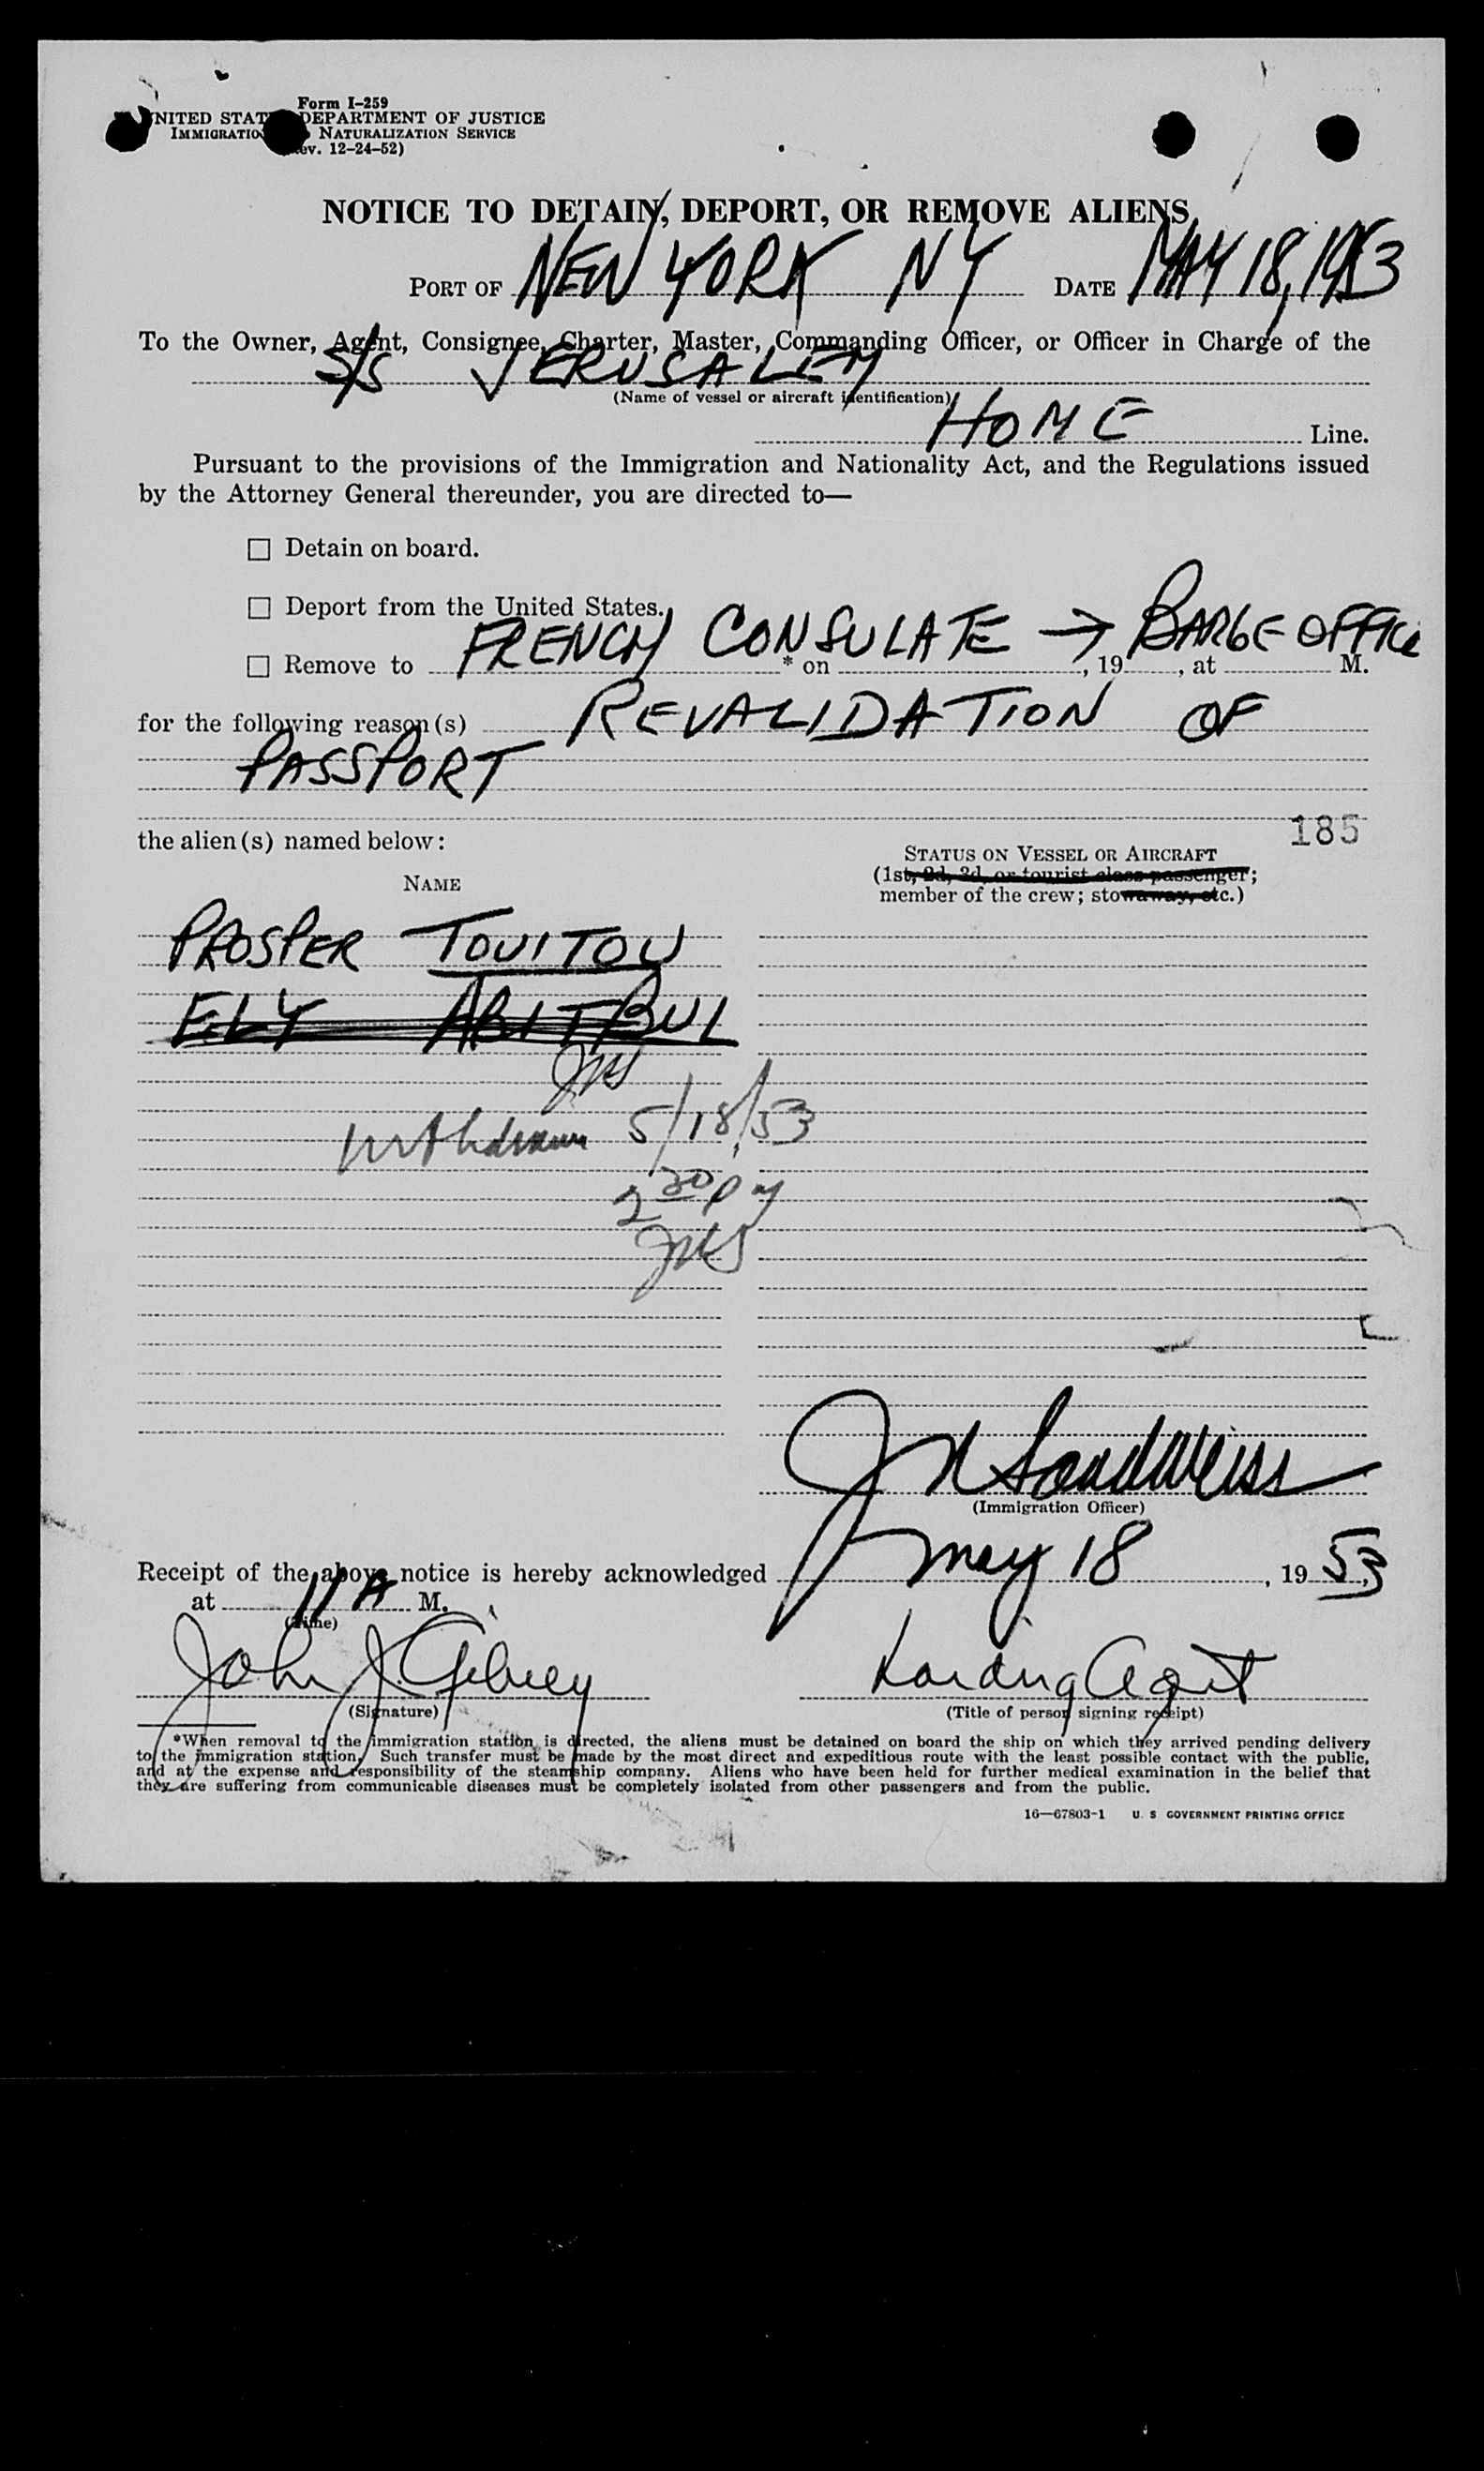 Form I-259
UNITED STATES DEPARTMENT OF JUSTICE
IMMIGRATION NATURALIZATION SERVICE
(Rev. 12-24-52)
NOTICE TO DETAIN, DEPORT, OR REMOVE ALIENS
PORT OF NEW YORK NY DATE MAY 18, 1953
To the Owner, Agent, Consignee, Charter, Master, Commanding Officer, or Officer in Charge of the
S/S JERUSALEM
(Name of vessel or aircraft identification)
HOME Line.
Pursuant to the provisions of the Immigration and Nationality Act, and the Regulations issued
by the Attorney General thereunder, you are directed to—
☐ Detain on board.
☐ Deport from the United States.
☐ Remove to FRENCH CONSULATE → BARGE OFFICE * on , 19 , at M.
for the following reason(s) REVALIDATION OF
PASSPORT
185
the alien(s) named below:
STATUS ON VESSEL OR AIRCRAFT
(1st, 2d, 3d, or tourist class passenger;
member of the crew; stowaway, etc.)
NAME
PROSPER TOUITOU
ELY ABITBUL
JNS
Withdrawn 5/18/53
2 30 pm
JNS
J N Sandweiss
(Immigration Officer)
Receipt of the above notice is hereby acknowledged May 18, 19 53,
at 11 A M.
(Time)
John J. Landing Agent
(Signature) (Title of person signing receipt)
*When removal to the immigration station is directed, the aliens must be detained on board the ship on which they arrived pending delivery
to the immigration station. Such transfer must be made by the most direct and expeditious route with the least possible contact with the public,
and at the expense and responsibility of the steamship company. Aliens who have been held for further medical examination in the belief that
they are suffering from communicable diseases must be completely isolated from other passengers and from the public.
16—67803-1 U. S GOVERNMENT PRINTING OFFICE